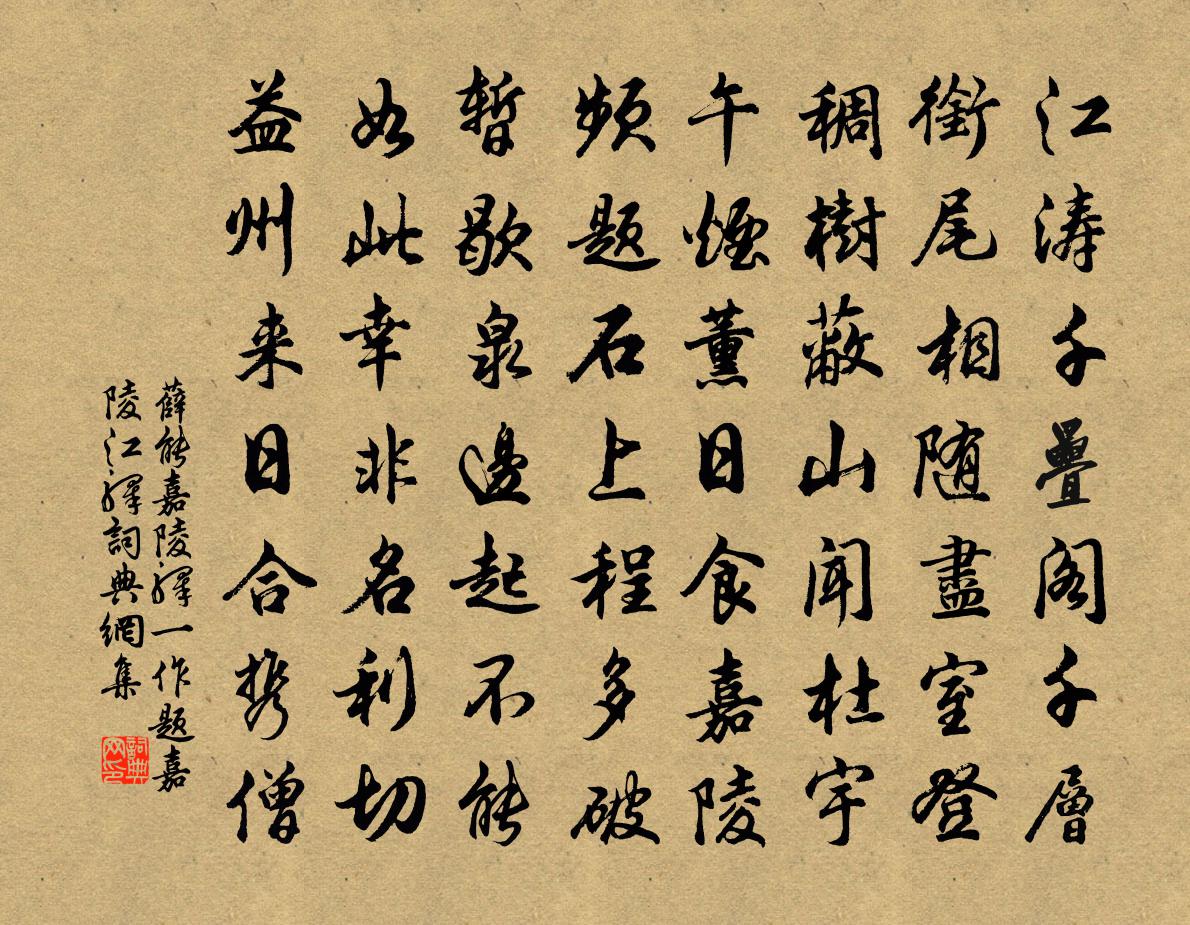 江涛千疊阁千層
銜尾相随盡室登
稠樹蔽山闻杜宇
午煙薰日食嘉陵
频题石上程多破
暂歇泉邊起不能
如此幸非名利切
益州来日合携僧
薛能嘉陵驛一作题嘉
陵江驛詞典網集
詞典
网印